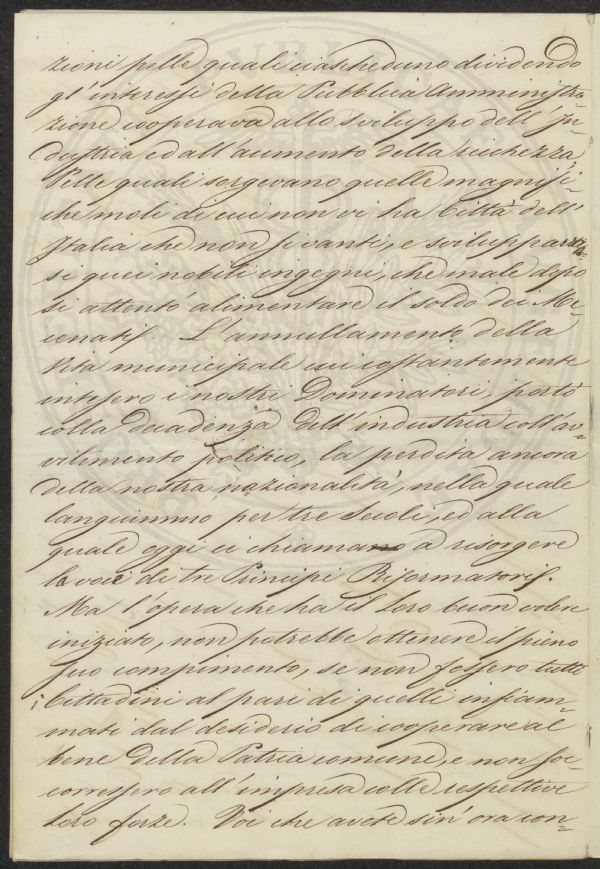 zioni pelle quali ciascheduno dividendo
gl'interessi della Pubblica Amministra-
zione cooperava allo sviluppo dell'In-
dustria ed all'aumento della ricchezza.
Pelle quali sorgevano quelle magnifi-
che moli di cui non vi ha Città dell'
Italia che non si vanti, e sviluppavan-
si quei nobili ingegni, che male dopo
si attentò alimentare il soldo dei Me-
cenati. L'annullamento della
vita municipale cui costantemente
intesero i nostri Dominatori, portò
colla decadenza dell'industria coll'av-
vilimento politico, la perdita ancora
della nostra nazionalità, nella quale
languimmo per tre Secoli, ed alla
quale oggi ci chiamano a risorgere
le voci di tre Principi Riformatori.
Ma l'opera che ha il loro buon volere
iniziato, non potrebbe ottenere il pieno
suo compimento, se non fossero tutti
i Cittadini al pari di quelli infiam-
mati dal desiderio di cooperare al
bene della Patria comune, e non soc-
corressero all'impresa colle respettive
loro forze. Voi che avete sin'ora con-